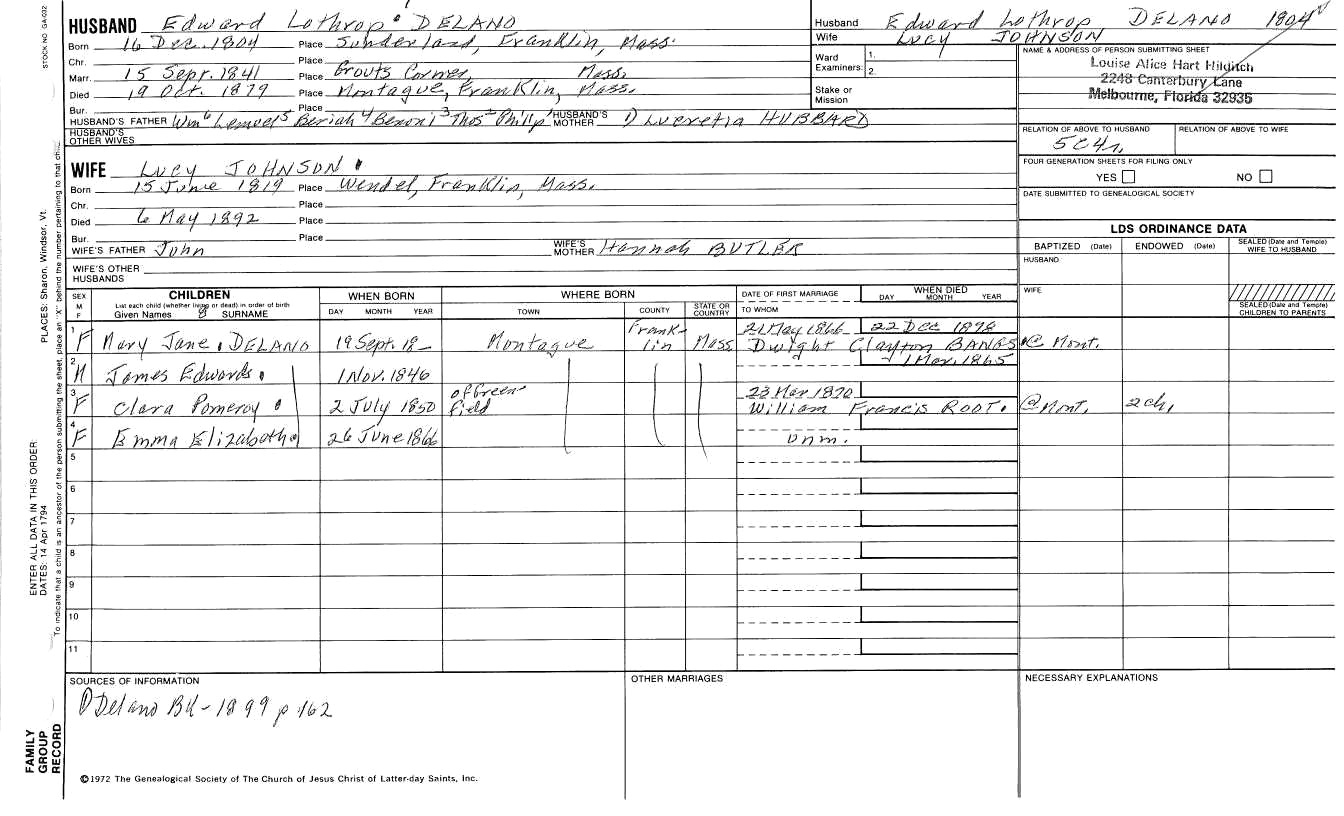 STOCK NO. GA-032
HUSBAND Edward Lothrop DELANO
Born 16 Dec. 1804 Place Sunderland, Franklin, Mass.
Chr. Place
Marr. 15 Sept. 1841 Place Grouts Corner, Mass.
Died 19 Oct. 1879 Place Montague, Franklin, Mass.
Bur. Place
HUSBAND'S FATHER Wm6 Lemuel5 Beriah4 Benoni3 Thos2 Philip1 HUSBAND'S MOTHER Lucretia HUBBARD
HUSBAND'S OTHER WIVES
WIFE Lucy JOHNSON
Born 15 June 1819 Place Wendel, Franklin, Mass.
Chr. Place
Died 6 May 1892 Place
Bur. Place
WIFE'S FATHER John WIFE'S MOTHER Hannah BUTLER
WIFE'S OTHER HUSBANDS
Husband Edward Lothrop DELANO 1804
Wife Lucy JOHNSON
Ward Examiners: 1. 2.
Stake or Mission
NAME & ADDRESS OF PERSON SUBMITTING SHEET
Louise Alice Hart Hilditch
2248 Canterbury Lane
Melbourne, Florida 32935
RELATION OF ABOVE TO HUSBAND RELATION OF ABOVE TO WIFE
5C4r
FOUR GENERATION SHEETS FOR FILING ONLY
YES NO
DATE SUBMITTED TO GENEALOGICAL SOCIETY
LDS ORDINANCE DATA
BAPTIZED (Date) ENDOWED (Date) SEALED (Date and Temple) WIFE TO HUSBAND
HUSBAND
WIFE
SEALED (Date and Temple) CHILDREN TO PARENTS
SEX M F CHILDREN List each child (whether living or dead) in order of birth Given Names SURNAME WHEN BORN DAY MONTH YEAR WHERE BORN TOWN COUNTY STATE OR COUNTRY DATE OF FIRST MARRIAGE TO WHOM WHEN DIED DAY MONTH YEAR
1 F Mary Jane DELANO 19 Sept. 18- Montague Franklin Mass 21 May 1866 22 Dec 1898 Dwight Clayton BANGS @ Mont.
2 M James Edwards 1 Nov. 1846 1 Mar. 1865
3 F Clara Pomeroy 2 July 1850 of Greenfield 23 Mar 1870 William Francis ROOT. @ Mont. 2 ch.
4 F Emma Elizabeth 26 June 1866 unm.
5
6
7
8
9
10
11
SOURCES OF INFORMATION
Delano BK - 1899 p 162
OTHER MARRIAGES
NECESSARY EXPLANATIONS
©1972 The Genealogical Society of The Church of Jesus Christ of Latter-day Saints, Inc.
FAMILY GROUP RECORD
ENTER ALL DATA IN THIS ORDER
DATES: 14 Apr 1794
PLACES: Sharon, Windsor, Vt.
To indicate that a child is an ancestor of the person submitting the sheet, place an "X" behind the number pertaining to that child.